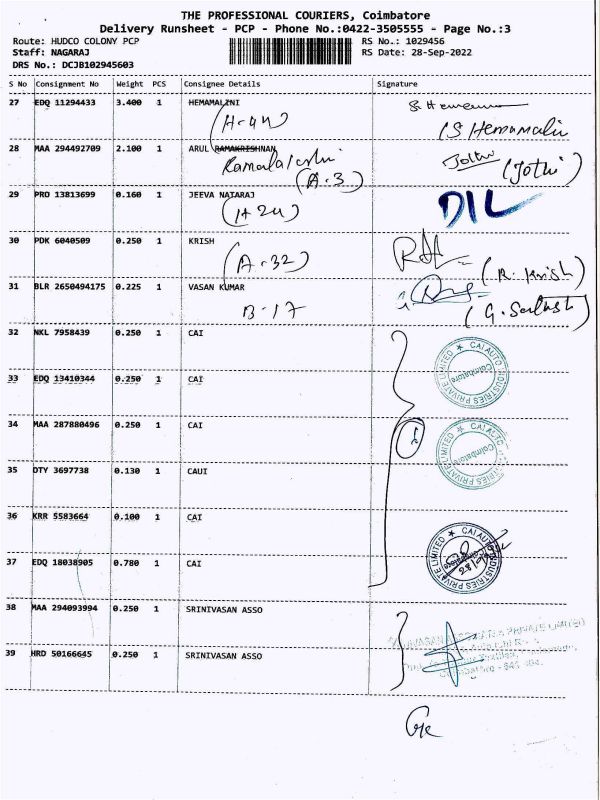 THE PROFESSIONAL COURIERS, Coimbatore
Delivery Runsheet - PCP - Phone No.:0422-3505555 - Page No.:3
Route: HUDCO COLONY PCP RS No.: 1029456
Staff: NAGARAJ RS Date: 28-Sep-2022
DRS No.: DCJB102945603
S No Consignment No Weight PCS Consignee Details Signature
27 EDQ 11294433 3.400 1 HEMAMALINI
(H-44) (S Hemamalini
28 MAA 294492709 2.100 1 ARUL RAMAKRISHNAN
(A-3) Jothi (Jothi)
29 PRO 13813699 0.160 1 JEEVA NATARAJ DIL
(H 24)
30 PDK 6040509 0.250 1 KRISH
(A-32) (R. Krish)
31 BLR 2650494175 0.225 1 VASAN KUMAR
B-17 (G. Sathish)
32 NKL 7958439 0.250 1 CAI
CAI AUTO INDUSTRIES PRIVATE LIMITED ★
Coimbatore
33 EDQ 13410344 0.250 1 CAI
34 MAA 287880496 0.250 1 CAI
CAI AUTO INDUSTRIES PRIVATE LIMITED ★
Coimbatore
35 DTY 3697738 0.130 1 CAUI
36 KRR 5583664 0.100 1 CAI
CAI AUTO INDUSTRIES PRIVATE LIMITED ★
37 EDQ 18038905 0.780 1 CAI
38 MAA 294093994 0.250 1 SRINIVASAN ASSO
PRIVATE LIMITED
39 HRD 50166645 0.250 1 SRINIVASAN ASSO